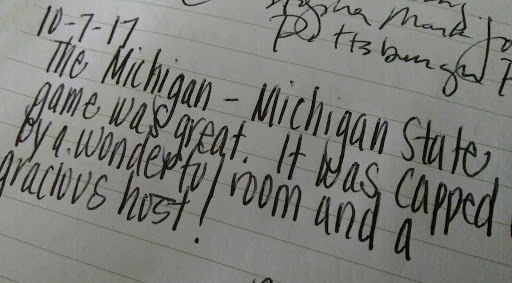 Mark
Pittsburgh
10-7-17
The Michigan - Michigan State
game was great. It was capped
by a wonderful room and a
gracious host!